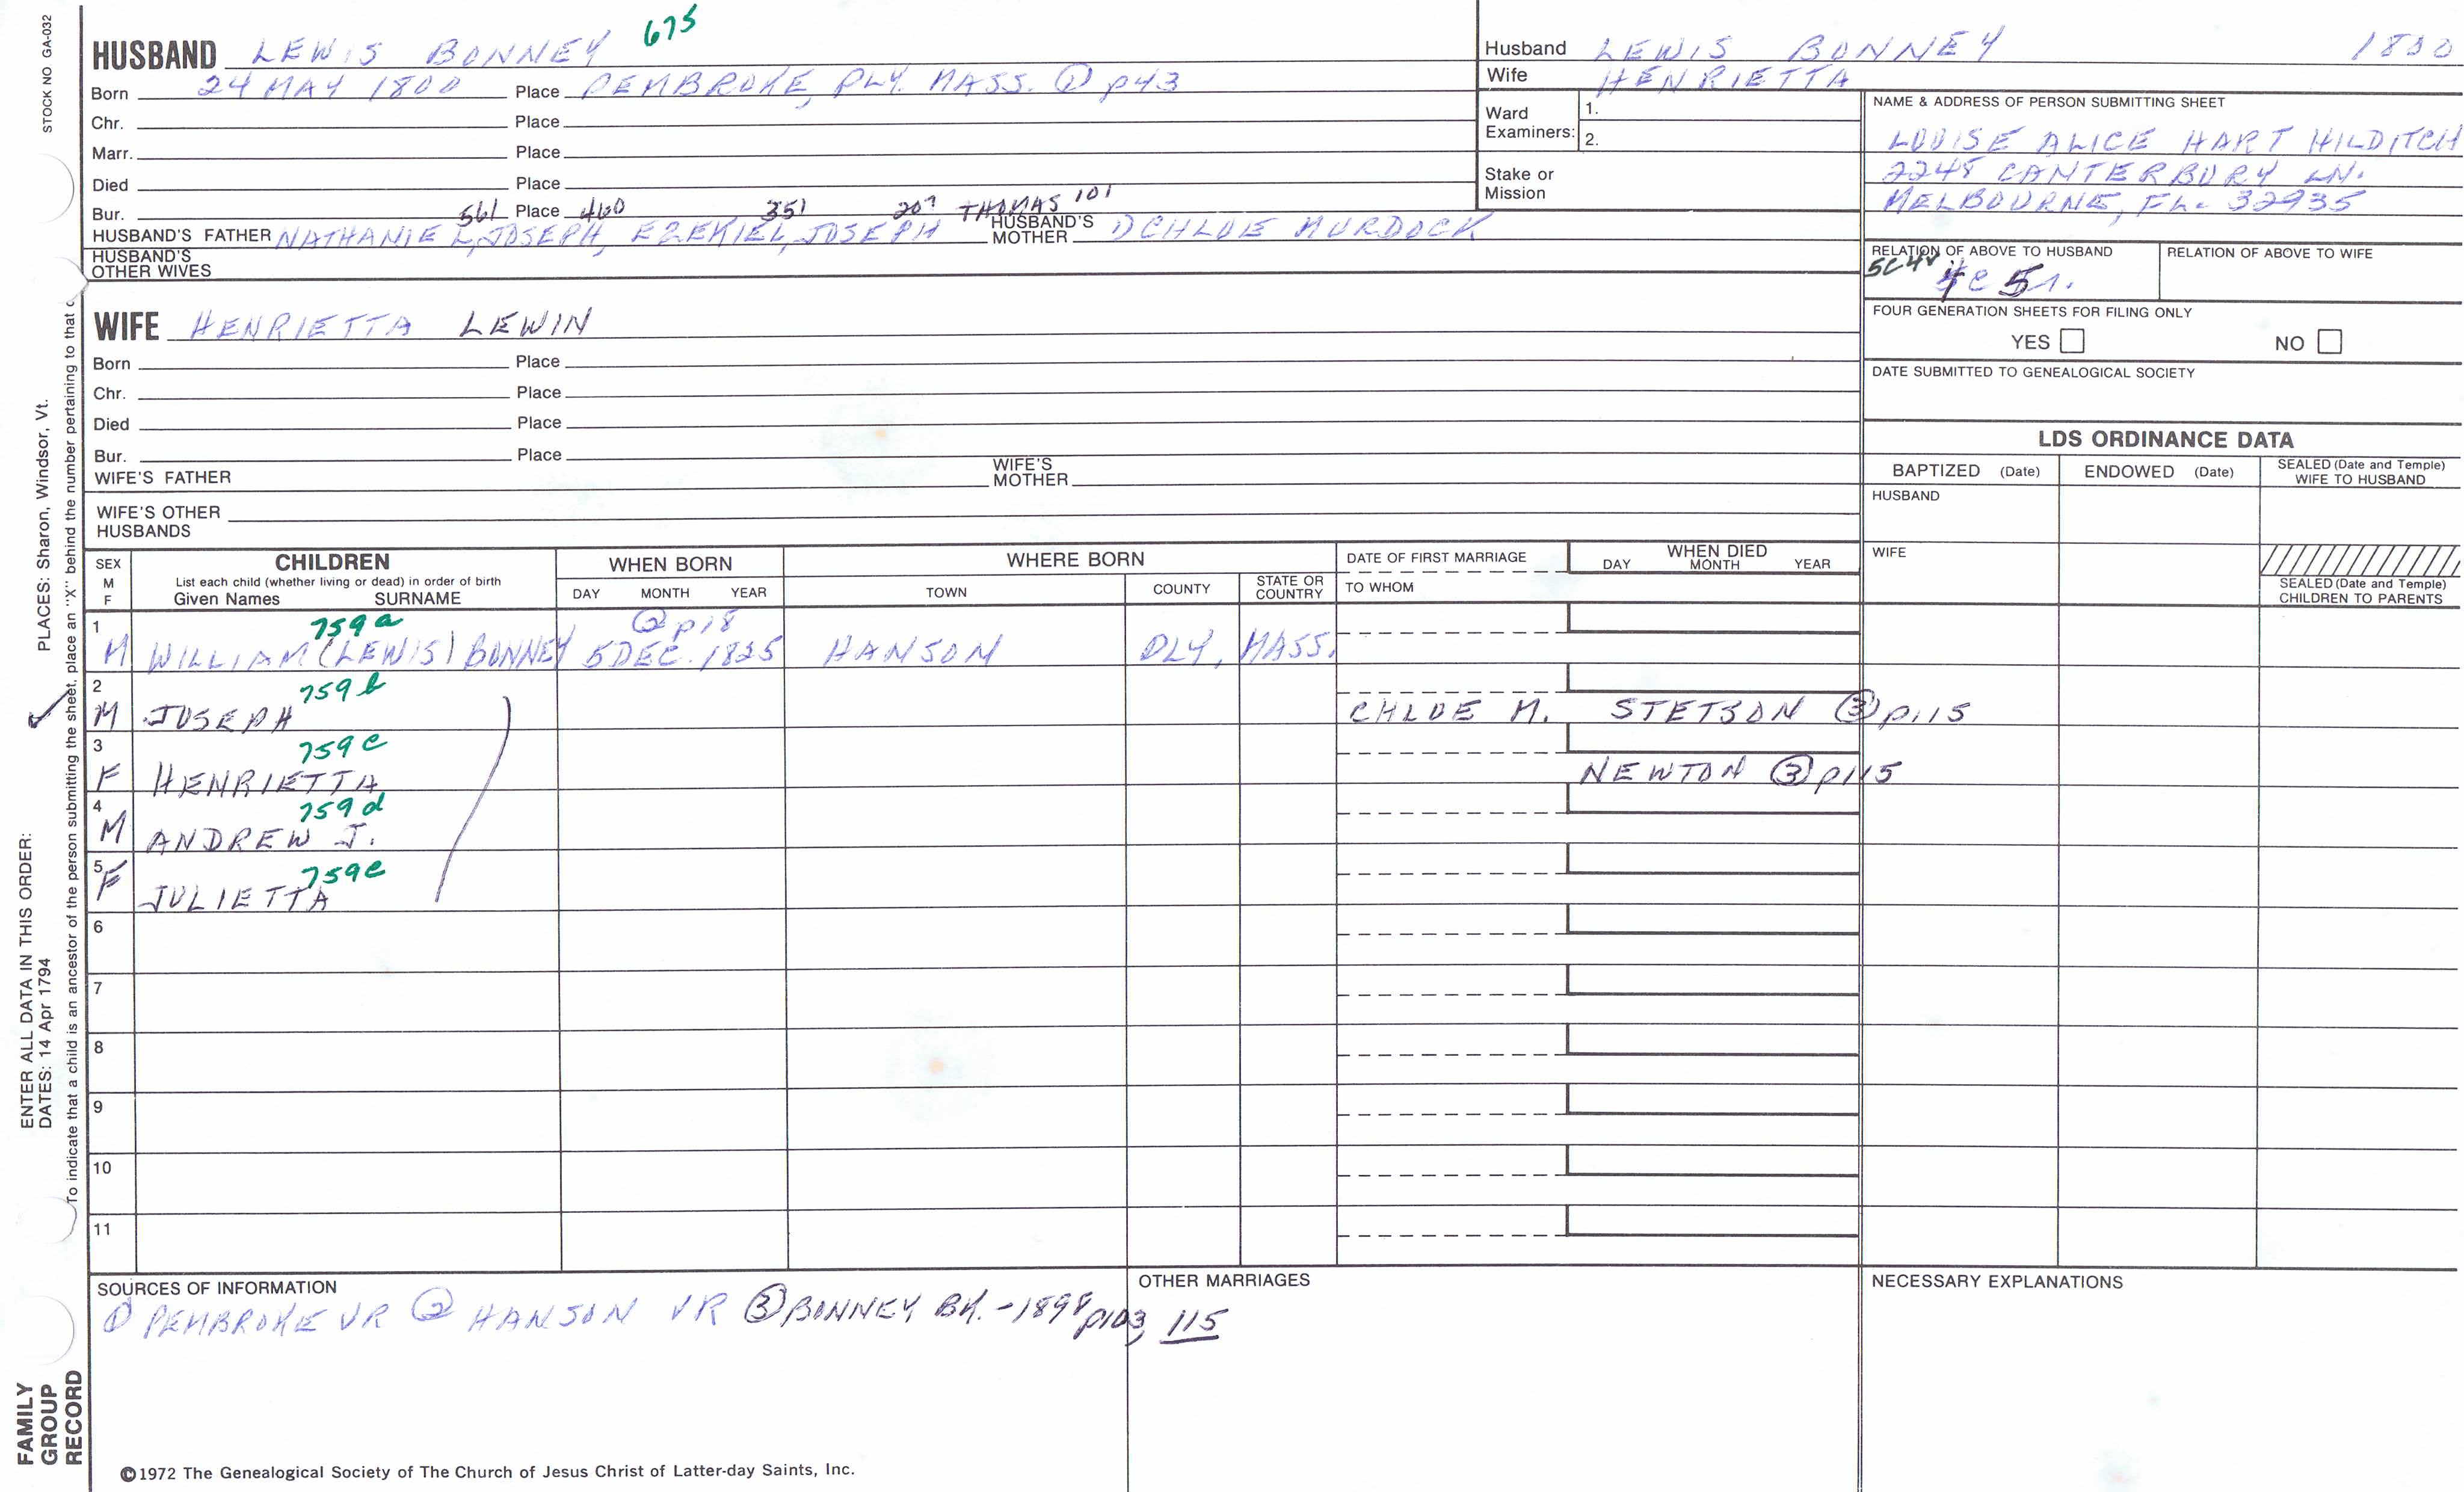 STOCK NO GA-032
675
HUSBAND LEWIS BONNEY
Born 24 MAY 1800 Place PEMBROKE, PLY. MASS. ① p43
Chr. Place
Marr. Place
Died Place
Bur. Place
561 460 351 207 THOMAS 101
HUSBAND'S FATHER NATHANIEL, JOSEPH, EZEKIEL, JOSEPH HUSBAND'S MOTHER ① CHLOE MURDOCK
HUSBAND'S OTHER WIVES
Husband LEWIS BONNEY 1800
Wife HENRIETTA
Ward Examiners: 1.
2.
Stake or Mission
NAME & ADDRESS OF PERSON SUBMITTING SHEET
LOUISE ALICE HART HILDITCH
2248 CANTERBURY LN.
MELBOURNE, FL. 32935
RELATION OF ABOVE TO HUSBAND
5C4r
RELATION OF ABOVE TO WIFE
FOUR GENERATION SHEETS FOR FILING ONLY
YES NO
DATE SUBMITTED TO GENEALOGICAL SOCIETY
WIFE HENRIETTA LEWIN
Born Place
Chr. Place
Died Place
Bur. Place
WIFE'S FATHER WIFE'S MOTHER
WIFE'S OTHER HUSBANDS
LDS ORDINANCE DATA
BAPTIZED (Date) ENDOWED (Date) SEALED (Date and Temple) WIFE TO HUSBAND
HUSBAND
WIFE
SEALED (Date and Temple) CHILDREN TO PARENTS
SEX M F
CHILDREN
List each child (whether living or dead) in order of birth
Given Names SURNAME
WHEN BORN
DAY MONTH YEAR
WHERE BORN
TOWN COUNTY STATE OR COUNTRY
DATE OF FIRST MARRIAGE
TO WHOM
WHEN DIED
DAY MONTH YEAR
759a ② p18
1 M WILLIAM (LEWIS) BONNEY 5 DEC. 1825 HANSON PLY, MASS.
759b
2 M JOSEPH CHLOE M. STETSON ③ p115
759c
3 F HENRIETTA NEWTON ③ p115
759d
4 M ANDREW J.
759e
5 F JULIETTA
6
7
8
9
10
11
SOURCES OF INFORMATION
① PEMBROKE VR ② HANSON VR ③ BONNEY BK. - 1898 p103, 115
OTHER MARRIAGES
NECESSARY EXPLANATIONS
©1972 The Genealogical Society of The Church of Jesus Christ of Latter-day Saints, Inc.
FAMILY GROUP RECORD
ENTER ALL DATA IN THIS ORDER:
DATES: 14 Apr 1794
PLACES: Sharon, Windsor, Vt.
To indicate that a child is an ancestor of the person submitting the sheet, place an "X" behind the number pertaining to that